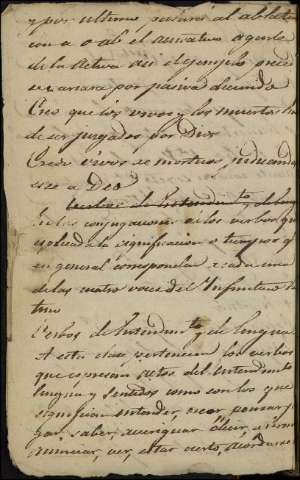 y por ultimo pasará al ablativo
con a o ab el acusativo agente
de la activa asi el ejemplo prece
se variara por pasiva diciendo
Creo que los vivos y los muertos han
de ser juzgados por Dios
Credo vivos se mortuos judicandos
esse a Deo
de Entendim.to y de lengua
las conjugaciones de los verbos que
la significacion o tiempos q
en general corresponden a cada una
de las cuatro voces del Infinitivo la
tino
Verbos de Entendim.to y de lengua
A esta clase pertenecen los verbos
que espresan actos del entendimto
lengua y sentidos como son los que
significan entender, creer, pensar, juz
gar, saber, averiguar, decir,
anunciar, ver, estar cierto, acordarse